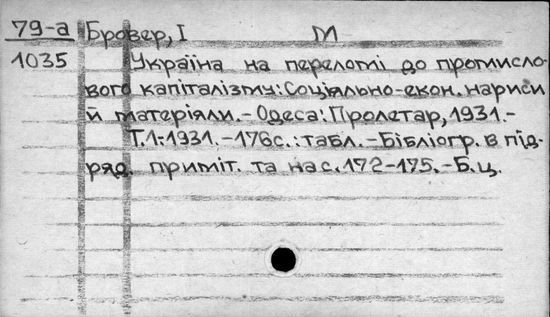 79-а Бровер, І М
1035 Україна на переломі до промисло-
вого капіталізму: Соціально-екон. нариси
й матеріяли.-Одеса: Пролетар, 1931.-
Т.1:-1931.-176с.: табл.-Бібліогр. в під-
ряд. приміт. та на с. 172-175.-Б.ц.